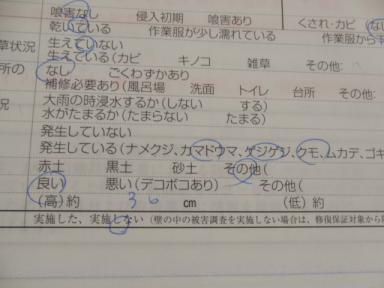 喰害なし　侵入初期　喰害あり　くされ・カビ　な
乾いている　作業服が少し濡れている　作業服から
草状況　生えていない
生えている（カビ　キノコ　雑草　その他:
所の　なし　ごくわずかあり
補修必要あり（風呂場　洗面　トイレ　台所　その他:
大雨の時浸水するか（しない　する）
況　水がたまるか（たまらない　たまる）
発生していない
発生している（ナメクジ、カマドウマ、ゲジゲジ、クモ、ムカデ、ゴキ
赤土　黒土　砂土　その他（
良い　悪い（デコボコあり）　その他（
（高）約　36　cm　（低）約
実施した、実施しない（壁の中の被害調査を実施しない場合は、修復保証対象から